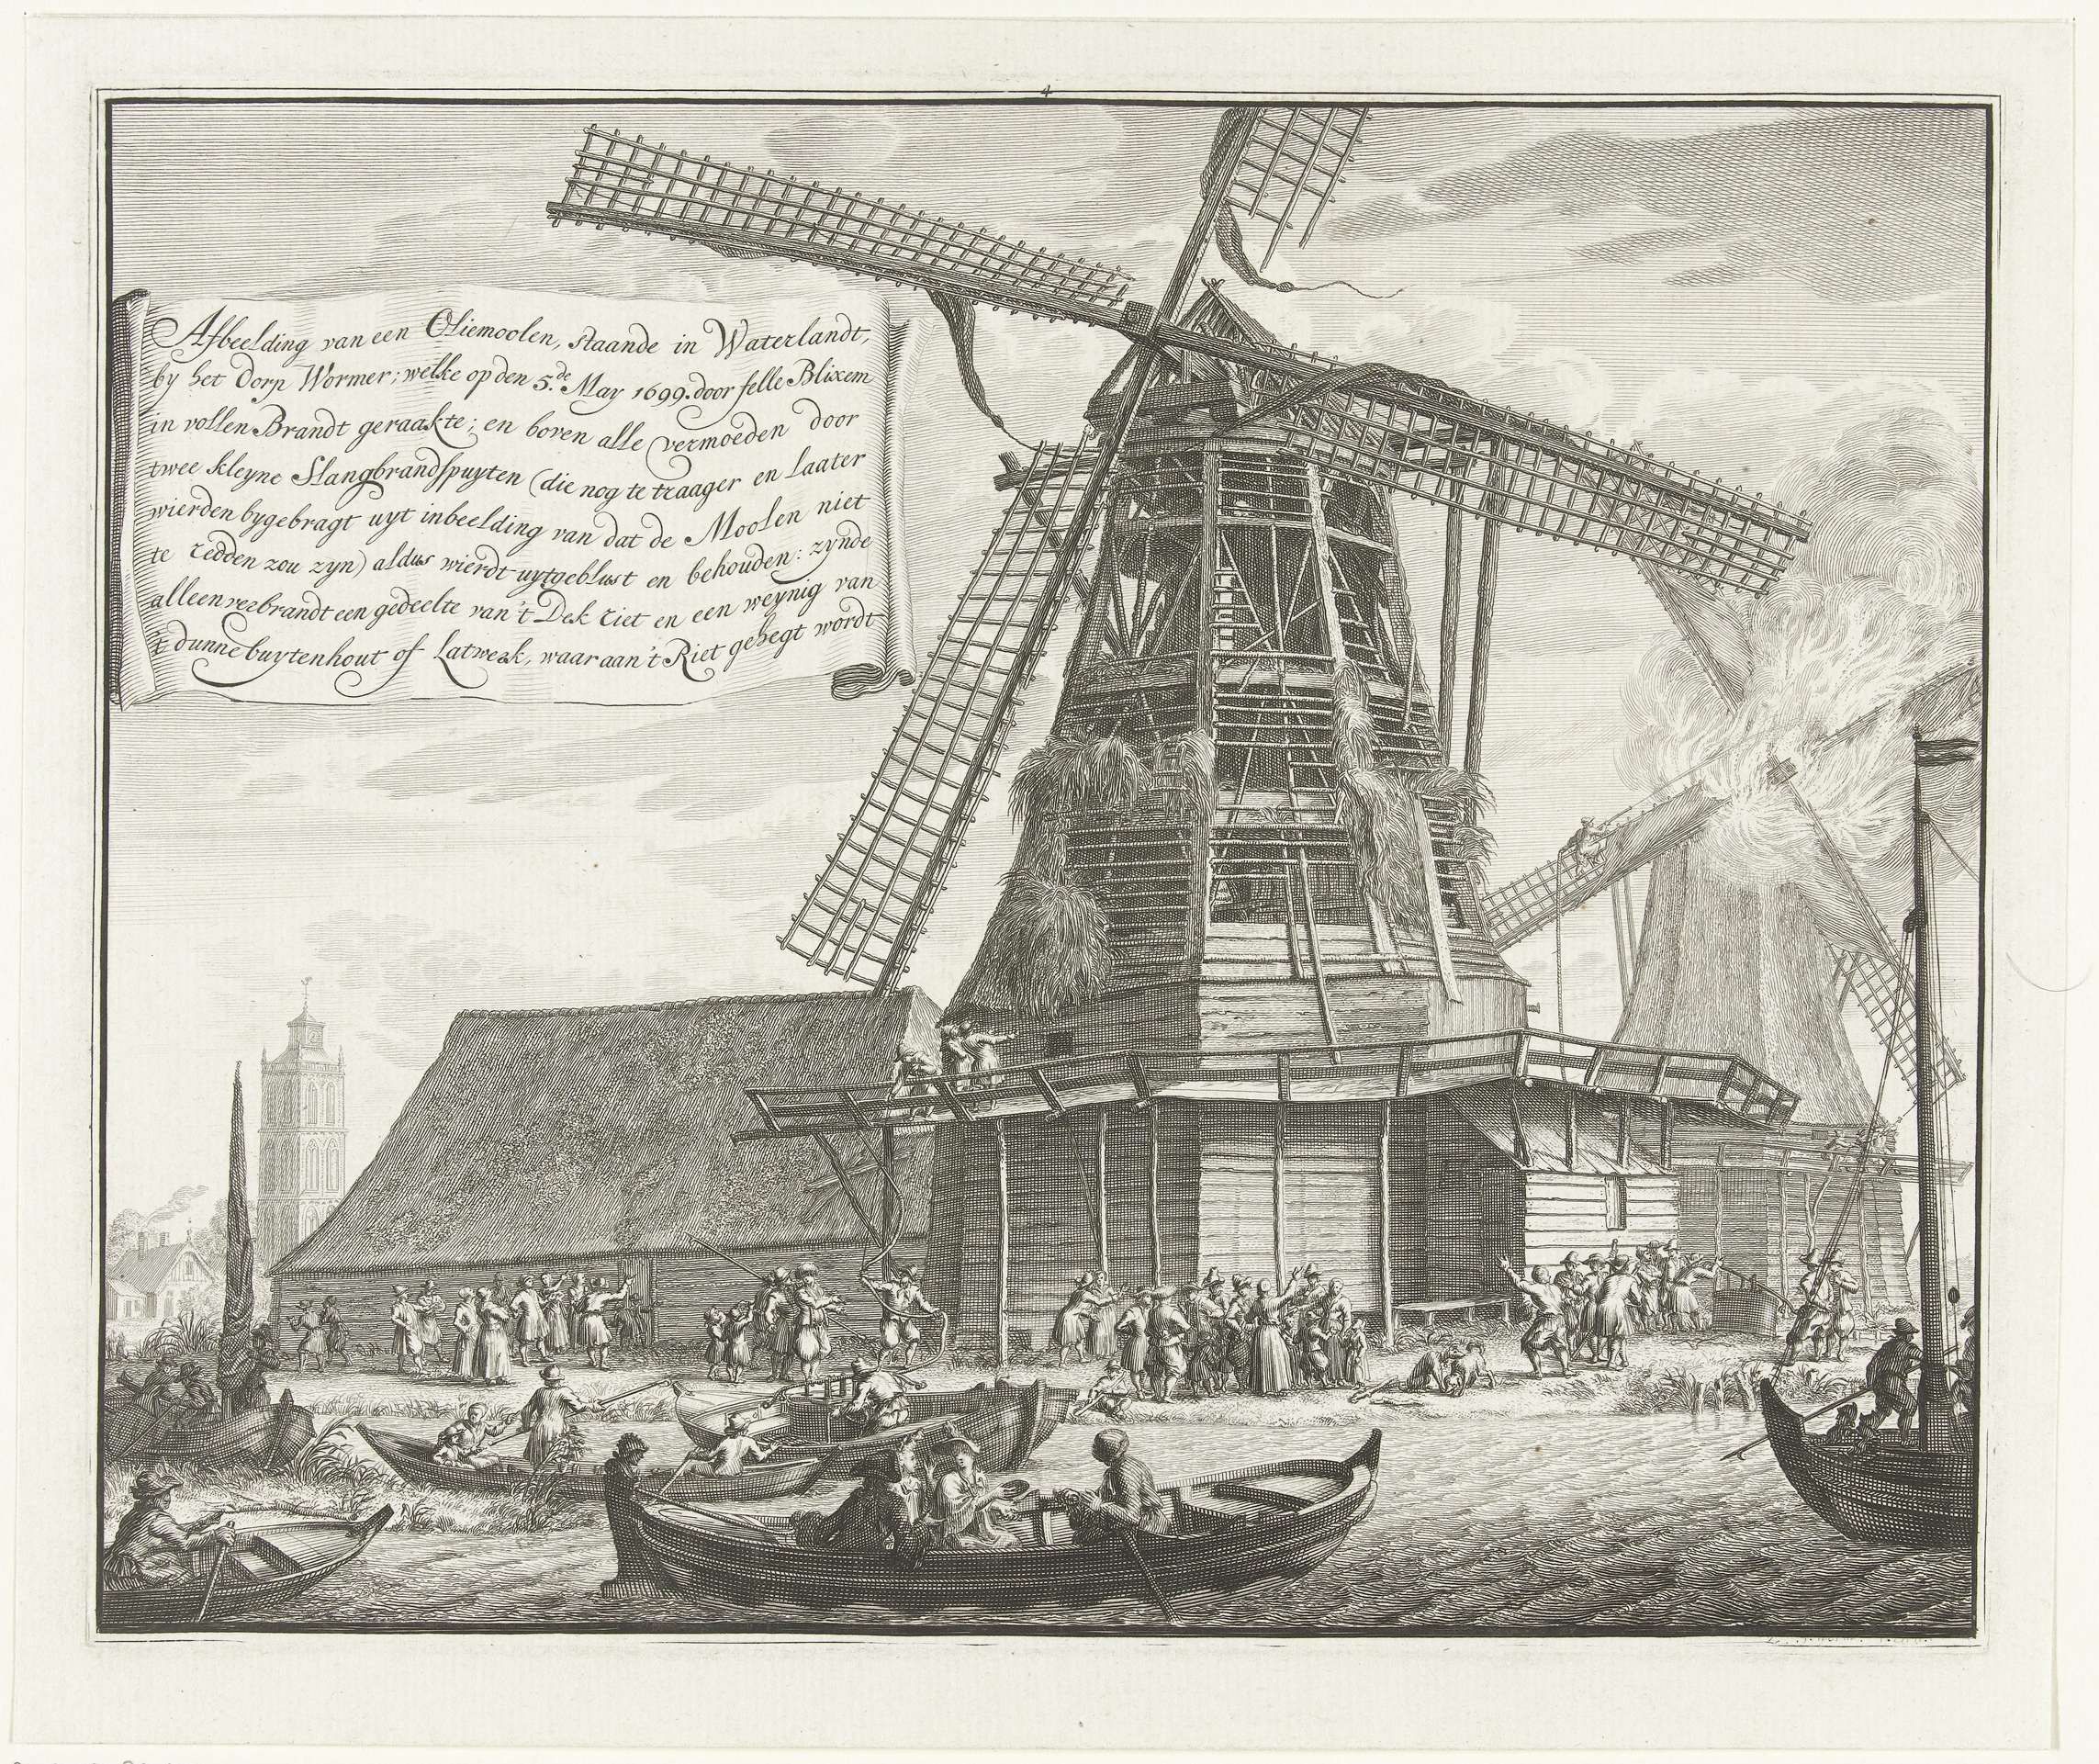 4
Afbeelding van een Oliemoolen, staande in Waterlandt,
by het Dorp Wormer; welke op den 5.de May 1699. door felle Blixem
in vollen Brandt geraakte; en boven alle vermoeden door
twee kleyne Slangbrandspuyten (die nog te traager en laater
wierden bygebragt uyt inbeelding van dat de Moolen niet
te redden zou zyn) aldus wierdt uytgeblust en behouden: zynde
alleen verbrandt een gedeelte van 't Dek riet en een weynig van
't dunne buytenhout of Latwerk, waar aan 't Riet gehegt wordt